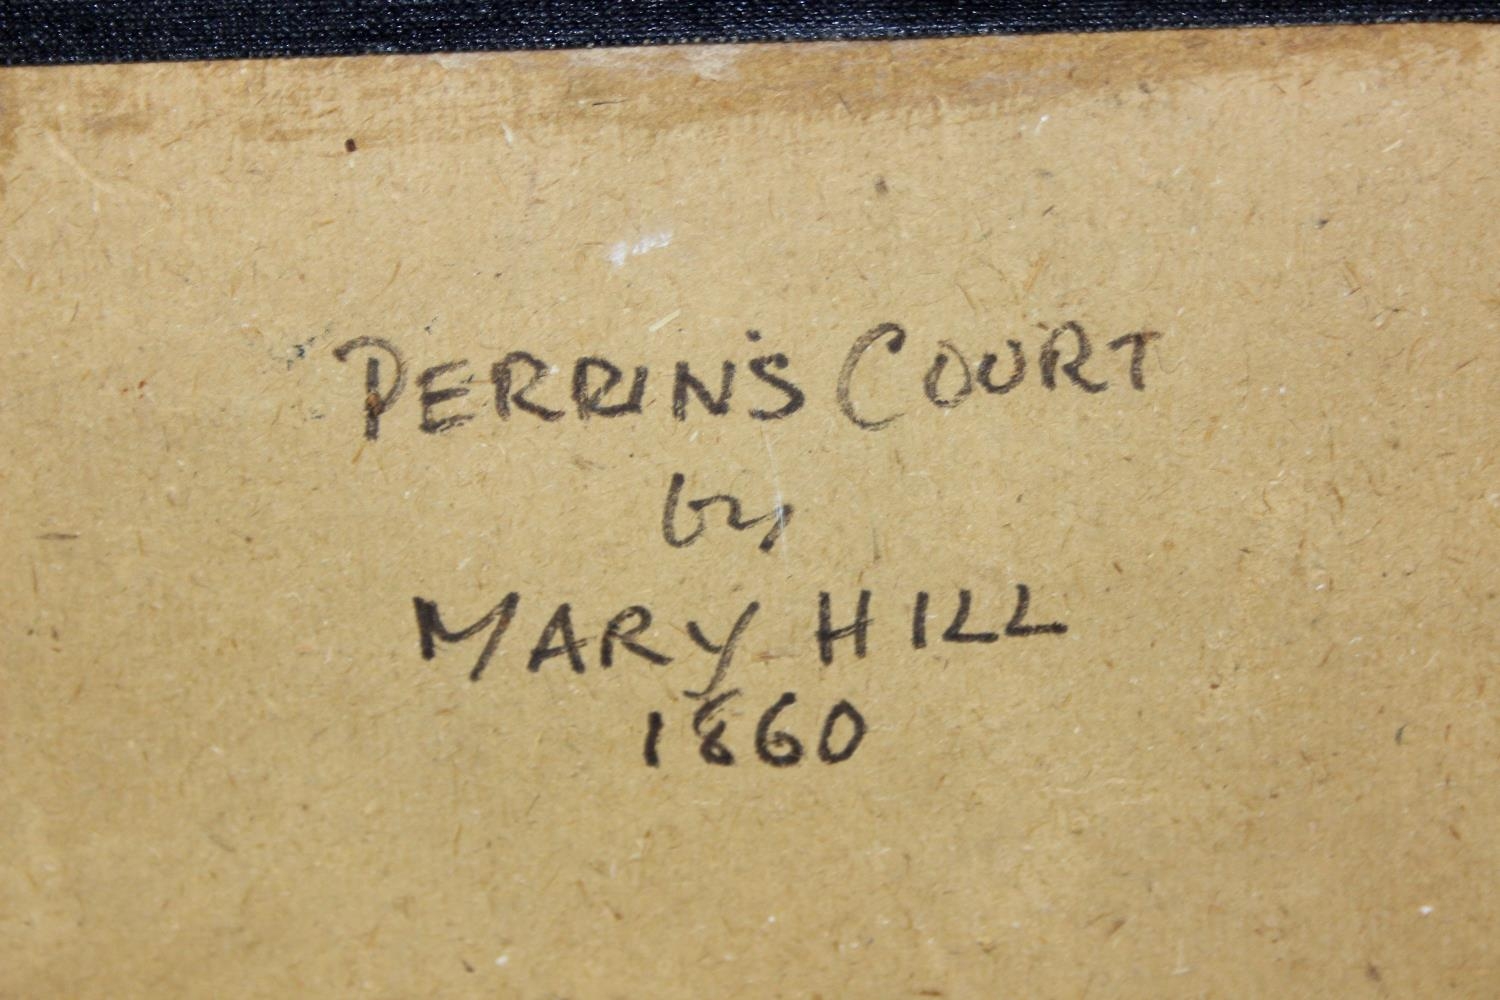 PERRIN'S COURT
by
MARY HILL
1860